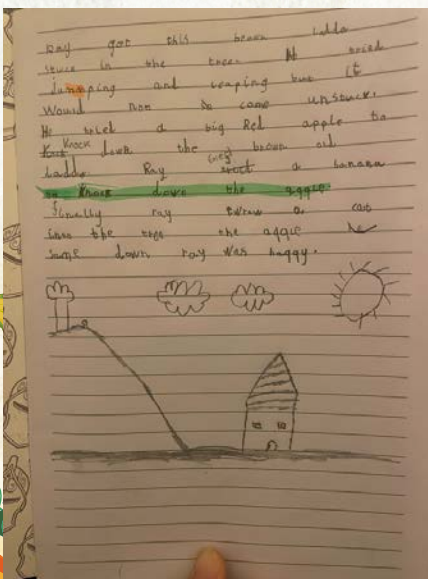 Ray got this brown ladde
stuce in the tree. He tried
Jumnping and leaping but it
Would not so come unstuck.
He a big Red apple to
Knock down the brown old
ladde. Ray a banana
to Knock down the aqqle
finally ray threw a cat
into the tree the aqqle
same down ray was haqqy.